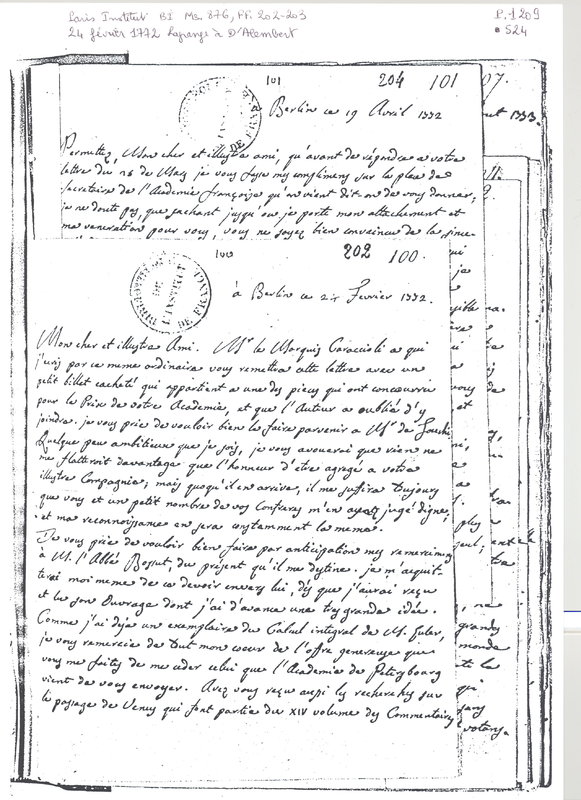 Paris Institut BI Ms. 876, ff. 202-203
24 février 1772 Lagrange à D'Alembert
P. 1209
• S24
101
204 101
Berlin ce 19 Avril 1772
Permettez, Mon cher et illustre ami, qu'avant de répondre a votre
lettre du 25 de Mars je vous fasse mes complimens sur la place de
Secretaire de l'Academie françoise qu'on vient dit-on de vous donner;
je ne doute pas, que sachant jusqu'ou je porte mon attachement et
ma veneration pour vous, vous ne soyez bien convaincu de la since-
100
202 100.
BIBLIOTHEQUE DE L'INSTITUT DE FRANCE
à Berlin ce 24 Fevrier 1772.
Mon cher et illustre Ami. Mr le Marquis Caraccioli a qui
j'ecris par ce meme ordinaire vous remettra cette lettre avec un
petit billet cacheté qui appartient a une des pieces qui ont concouru
pour le Prix de vôtre Academie, et que l'Auteur a oublié d'y
joindre. je vous prie de vouloir bien le faire parvenir a Mr de Fouchi
Quelque peu ambitieux que je sois, je vous avouerai que rien ne
me flatteroit davantage que l'honneur d'etre agregé a votre
illustre Compagnie; mais quoiqu'il en arrive, il me suffira toujours
que vous et un petit nombre de vos Confreres m'en ayez jugé digne,
et ma reconnoissance en sera constamment la meme.
Je vous prie de vouloir bien faire par anticipation mes remercimens
à M. l'Abbé Bossut, du présent qu'il me destine. je m'acquit-
terai moi meme de ce devoir envers lui, dès que j'aurai reçu
et lu son Ouvrage dont j'ai d'avance une tres grande idée.
Comme j'ai deja un exemplaire du Calcul integral de M. Euler,
je vous remercie de tout mon coeur de l'offre genereuse que
vous me faites de me ceder celui que l'Academie de Petersbourg
vient de vous envoyer. Avez vous reçu aussi les recherches sur
le passage de Venus qui font partie du XIV volume des Commentaires